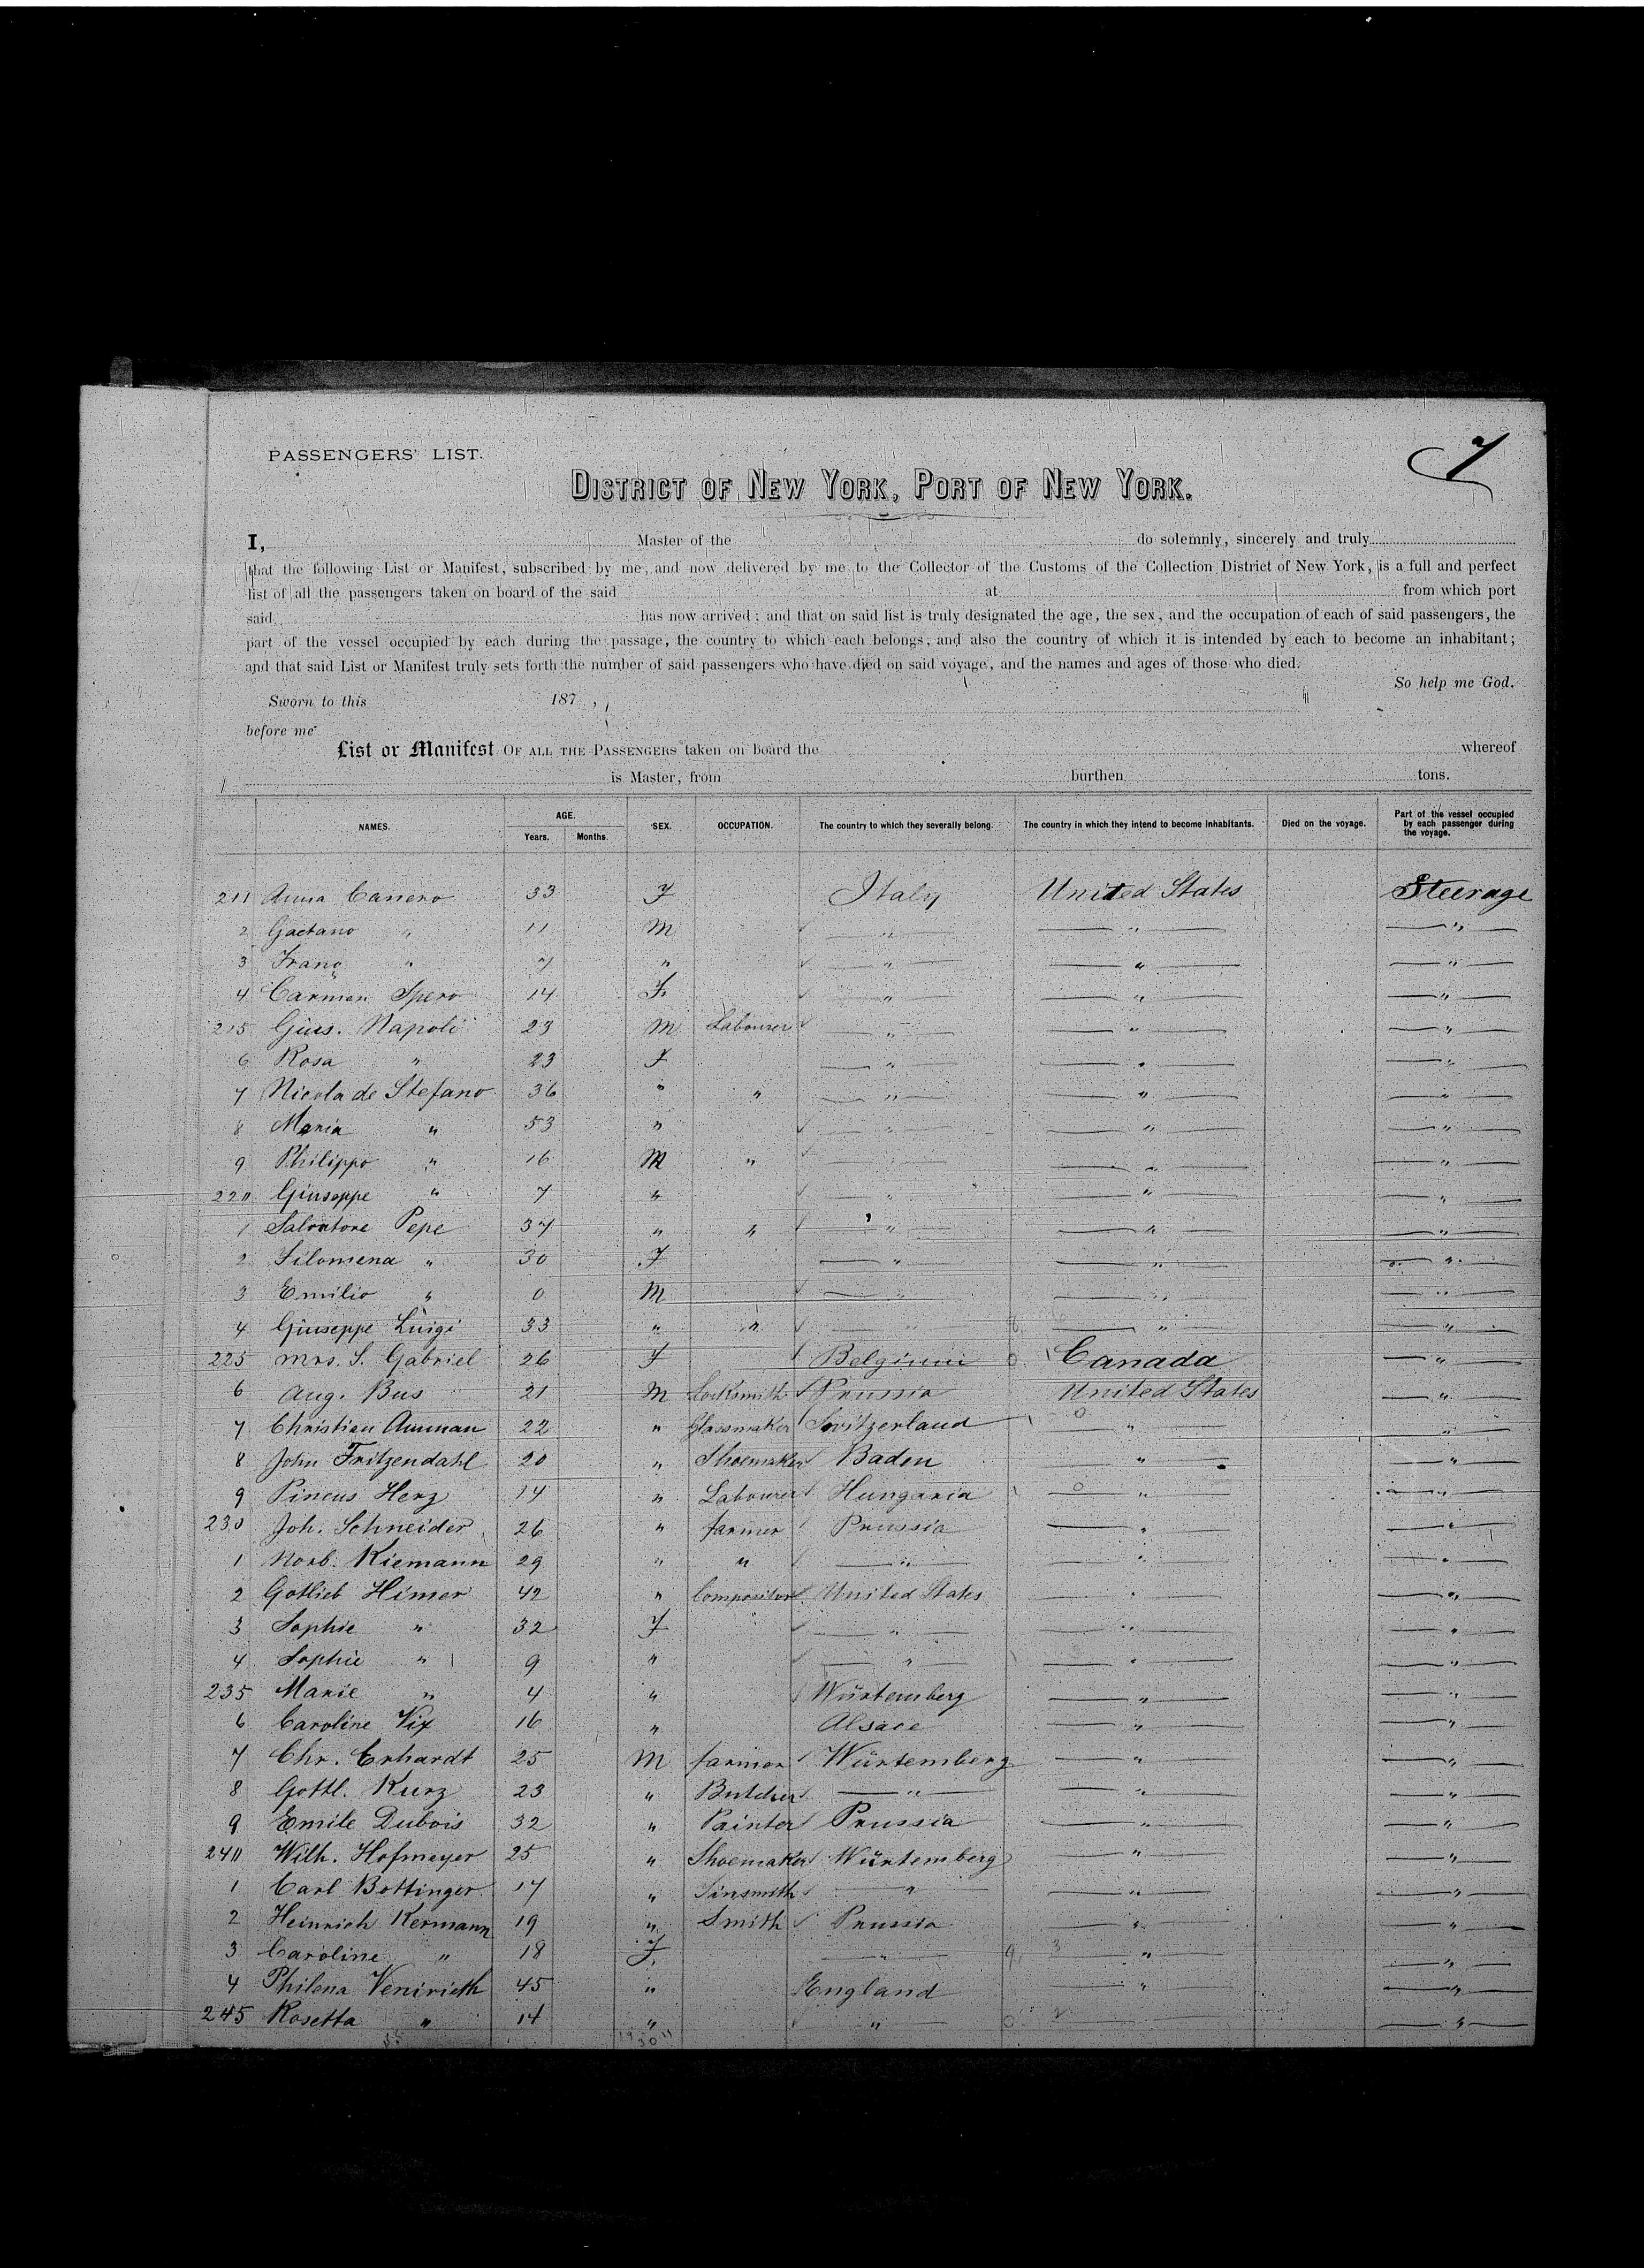 PASSENGERS' LIST.
7
DISTRICT OF NEW YORK, PORT OF NEW YORK.
I, Master of the do solemnly, sincerely and truly
that the following List or Manifest, subscribed by me, and now delivered by me to the Collector of the Customs of the Collection District of New York, is a full and perfect
list of all the passengers taken on board of the said at from which port
said has now arrived; and that on said list is truly designated the age, the sex, and the occupation of each of said passengers, the
part of the vessel occupied by each during the passage, the country to which each belongs, and also the country of which it is intended by each to become an inhabitant;
and that said List or Manifest truly sets forth the number of said passengers who have died on said voyage, and the names and ages of those who died.
So help me God.
Sworn to this 187 ,
before me
List or Manifest OF ALL THE PASSENGERS taken on board the whereof
is Master, from burthen tons.
NAMES. AGE. Years. Months. SEX. OCCUPATION. The country to which they severally belong. The country in which they intend to become inhabitants. Died on the voyage. Part of the vessel occupied by each passenger during the voyage.
211 Anna Canero 33 F Italy United States Steerage
2 Gaetano " 11 M " " "
3 Franc " 7 " " " "
4 Carmen Spero 14 F. " " "
215 Gius. Napoli 23 M Labourer " " "
6 Rosa " 23 F " " "
7 Nicola de Stefano 36 " " " " "
8 Maria " 53 " " " "
9 Philippo " 16 M " " " "
220 Giuseppe " 7 " " " "
1 Salvatore Pepe 37 " " " " "
2 Filomena " 30 F " " "
3 Emilio " 0 M " " "
4 Giuseppe Luigi 33 " " " " "
225 Mrs. S. Gabriel 26 F Belgium Canada "
6 Aug. Bus 21 M Locksmith Prussia United States "
7 Christian Amman 22 " Glassmaker Switzerland " "
8 John Fritzendahl 20 " Shoemaker Baden " "
9 Pincus Herz 14 " Labourer Hungaria " "
230 Joh. Schneider 26 " farmer Prussia " "
1 Norb. Kiemann 29 " " " " "
2 Gotlieb Himer 42 " Compositor United States " "
3 Sophie " 32 F " " "
4 Sophie " 9 " " " "
235 Marie " 4 " Würtemberg " "
6 Caroline Vix 16 " Alsace " "
7 Chr. Erhardt 25 M farmer Würtemberg " "
8 Gottl. Kurz 23 " Butcher " " "
9 Emile Dubois 32 " Painter Prussia " "
240 Wilh. Hofmeyer 25 " Shoemaker Würtemberg " "
1 Carl Bottinger 17 " Tinsmith " " "
2 Heinrich Kermann 19 " Smith Prussia " "
3 Caroline " 18 F. " " "
4 Philena Venirieth 45 " England " "
245 Rosetta " 14 " " " "